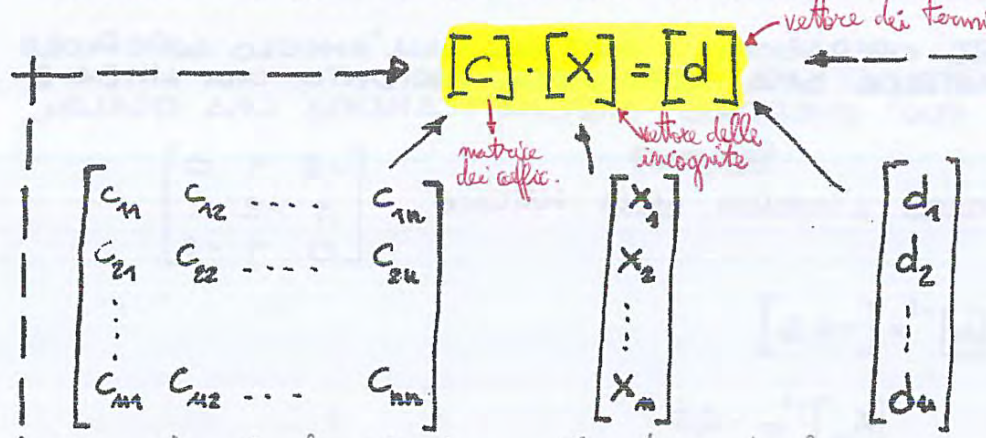 vettore dei termi
[C] · [X] = [d]
matrice dei coeffic.
vettore delle incognite
C11 C12 .... C1n
C21 C22 .... C2n
⋮
Cn1 Cn2 ... Cnn
X1
X2
⋮
Xn
d1
d2
⋮
dn